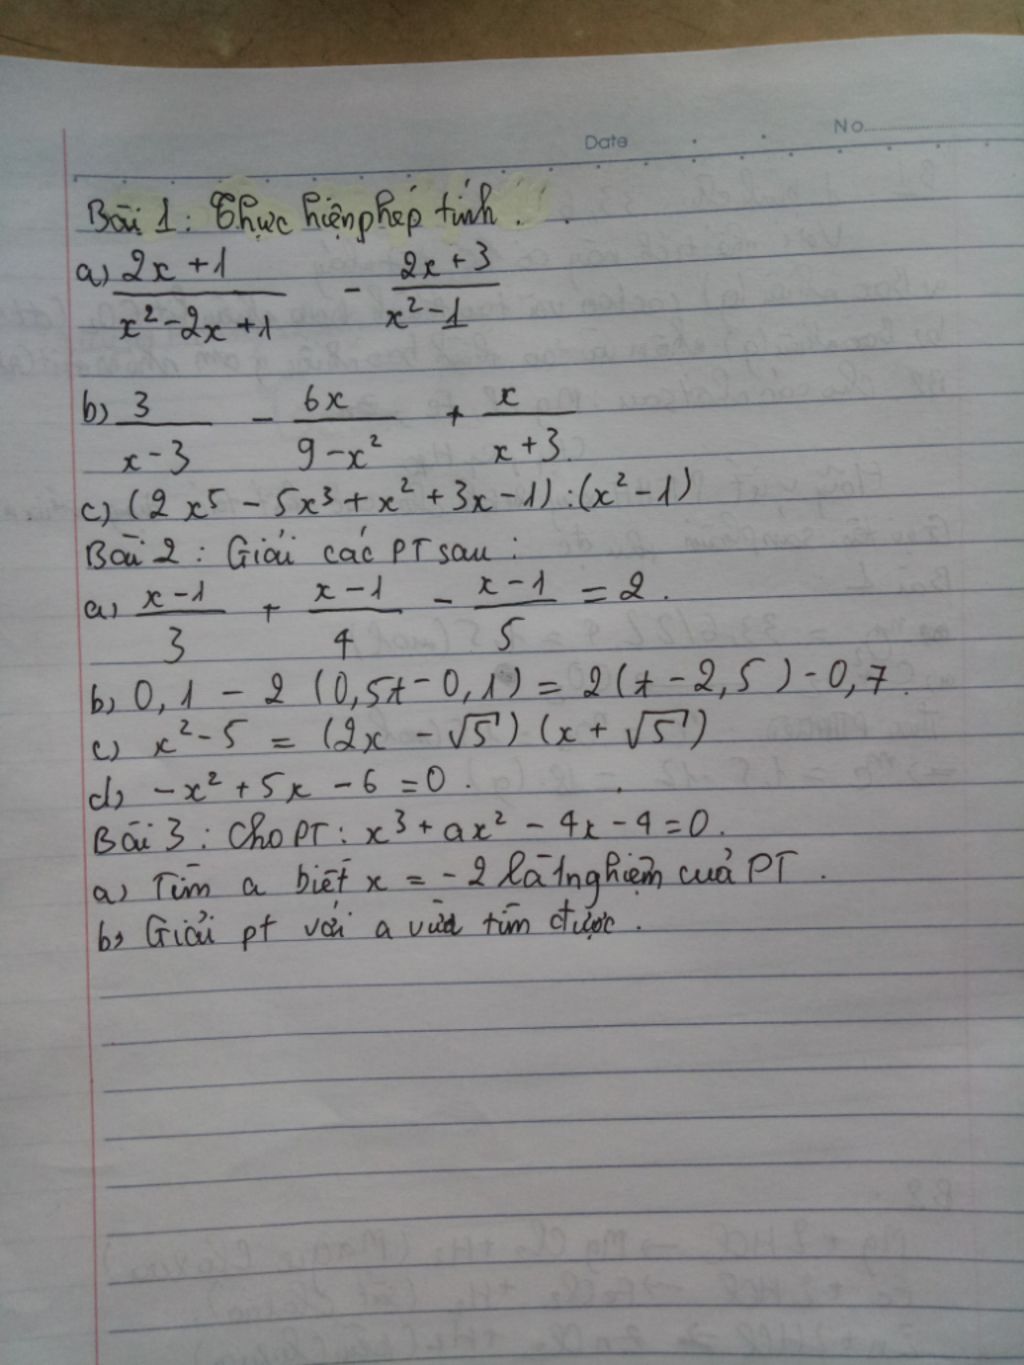 Date No
Bài 1: Thực hiện phép tính.
a) (2x+1)/(x²-2x+1) - (2x+3)/(x²-1)
b) 3/(x-3) - 6x/(9-x²) + x/(x+3)
c) (2x⁵ - 5x³ + x² + 3x - 1) : (x² - 1)
Bài 2: Giải các PT sau:
a) (x-1)/3 + (x-1)/4 - (x-1)/5 = 2.
b) 0,1 - 2 (0,5t - 0,1) = 2(t - 2,5) - 0,7.
c) x² - 5 = (2x - √5) (x + √5)
d) -x² + 5x - 6 = 0.
Bài 3: Cho PT: x³ + ax² - 4x - 4 = 0.
a) Tìm a biết x = -2 là 1 nghiệm của PT.
b) Giải pt với a vừa tìm được.